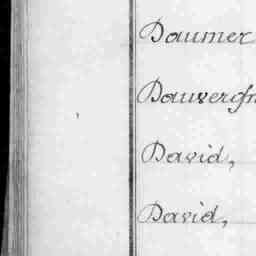 Daumer
Dauvergn
David,
David,